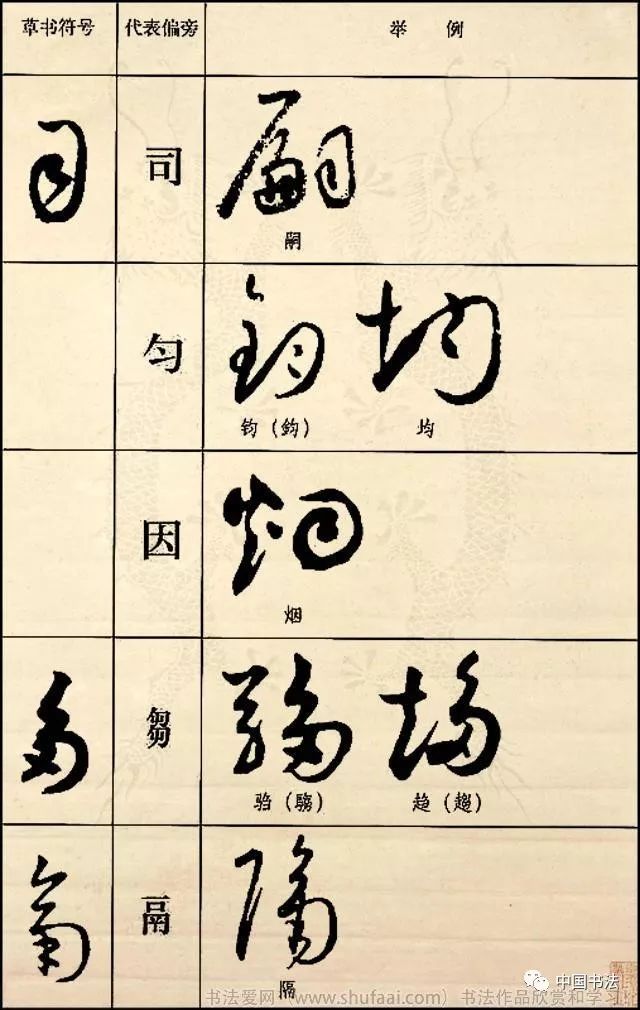 草书符号 代表偏旁 举例
司
嗣
匀
钧（鈞） 均
因
烟
芻
驺（騶） 趋（趨）
鬲
隔
中国书法
书法爱网（www.shufaai.com）书法作品欣赏和学习